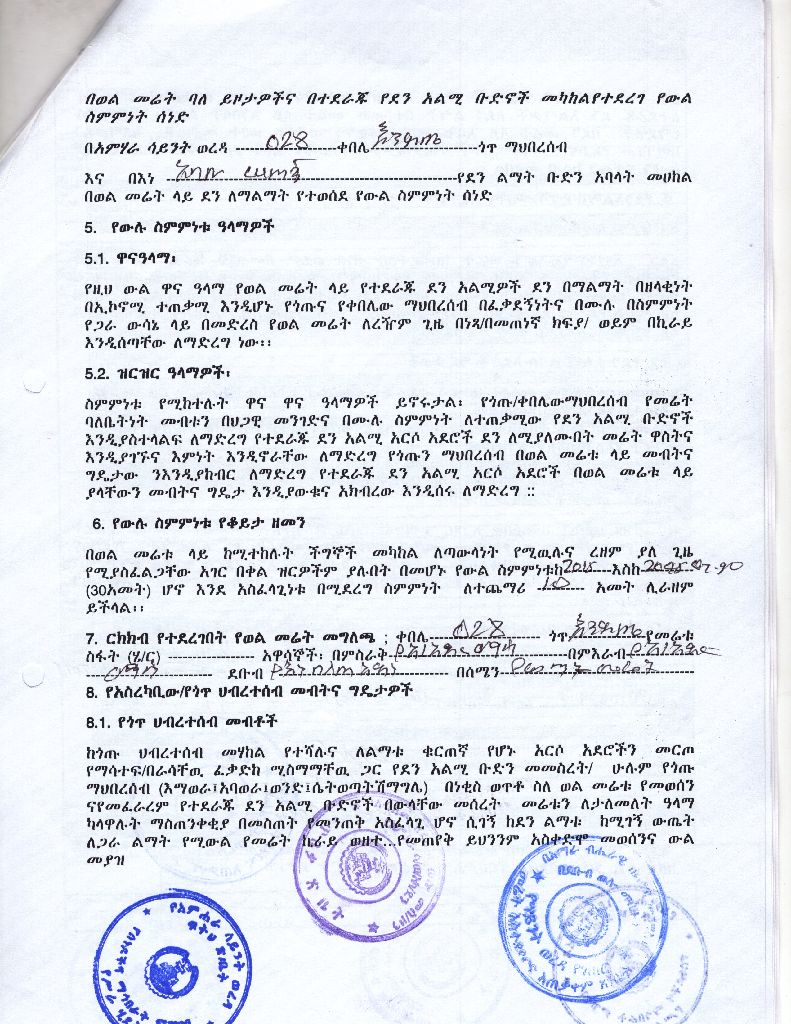 በወል መሬት ባለ ይዞታዎችና በተደራጁ የደን አልሚ ቡድኖች መካከልየተደረገ የውል
ስምምነት ሰነድ
በአምሃራ ሳይንት ወረዳ ---------------- 028 ----------------ቀበሌ ----------------ጎጥ ማህበረሰብ
እና በእነ ----------------የደን ልማት ቡድን አባላት መሀከል
በወል መሬት ላይ ደን ለማልማት የተወሰደ የውል ስምምነት ሰነድ
5. የውሉ ስምምነቱ ዓላማዎች
5.1. ዋናዓላማ፡
የዚህ ውል ዋና ዓላማ የወል መሬት ላይ የተደራጁ ደን አልሚዎች ደን በማልማት በዘላቂነት
በኢኮኖሚ ተጠቃሚ እንዲሆኑ የጎጡና የቀበሌው ማህበረሰብ በፈቃደኝነትና በሙሉ በስምምነት
የጋራ ውሳኔ ላይ በመድረስ የወል መሬት ለረዥም ጊዜ በነጻ/በመጠነኛ ክፍያ/ ወይም በኪራይ
እንዲሰጣቸው ለማድረግ ነው፡፡
5.2. ዝርዝር ዓላማዎች፡
ስምምነቱ የሚከተሉት ዋና ዋና ዓላማዎች ይኖሩታል፡ የጎጡ/ቀበሌውማህበረሰብ የመሬት
ባለቤትነት መብቱን በህጋዊ መንገድና በሙሉ ስምምነት ለተጠቃሚው የደን አልሚ ቡድኖች
እንዲያስተላልፍ ለማድረግ የተደራጁ ደን አልሚ አርሶ አደሮች ደን ለሚያለሙበት መሬት ዋስትና
እንዲያገኙና እምነት እንዲኖራቸው ለማድረግ የጎጡን ማህበረሰብ በወል መሬቱ ላይ መብትና
ግዴታው ንእንዲያከብር ለማድረግ የተደራጁ ደን አልሚ አርሶ አደሮች በወል መሬቱ ላይ
ያላቸውን መብትና ግዴታ እንዲያውቁና አክብረው እንዲሰሩ ለማድረግ ::
6. የውሉ ስምምነቱ የቆይታ ዘመን
በወል መሬቱ ላይ ከሚተከሉት ችግኞች መካከል ለጣውላነት የሚዉሉና ረዘም ያለ ጊዜ
የሚያስፈልጋቸው አገር በቀል ዝርዎችም ያሉበት በመሆኑ የውል ስምምነቱከ 2015 ----እስከ
(30አመት) ሆኖ እንደ አስፈላጊነቱ በሚደረግ ስምምነት ለተጨማሪ --10-- አመት ሊራዘም
ይችላል፡፡
7. ርክክብ የተደረገበት የወል መሬት መግለጫ ; ቀበሌ------- 028 ------- ጎጥ የመሬቱ
ስፋት (ሄ/ር) ---------------- አዋሳኞች፡ በምስራቅ ----------------በምእራብ
---------------- ደቡብ ---------------- በሰሜን ----------------
8. የአስረካቢው/የጎጥ ህብረተሰብ መብትና ግዴታዎች
8.1. የጎጥ ህብረተሰብ መብቶች
ከጎጡ ህብረተሰብ መሃከል የተሻሉና ለልማቱ ቁርጠኛ የሆኑ አርሶ አደሮችን መርጦ
የማሳተፍ/በራሳቸዉ ፈቃድከ ሚስማማቸዉ ጋር የደን አልሚ ቡድን መመስረት/ ሁሉም የጎጡ
ማህበረሰብ (እማወራ፤አባወራ፤ወንድ፤ሴትወጣት፤ሽማግሌ) በነቂስ ወጥቶ ስለ ወል መሬቱ የመወሰን
ናየመፈራረም የተደራጁ ደን አልሚ ቡድኖች በውላቸው መሰረት መሬቱን ለታለመለት ዓላማ
ካላዋሉት ማስጠንቀቂያ በመስጠት የመንጠቅ አስፈላጊ ሆኖ ሲገኝ ከደን ልማቱ ከሚገኝ ውጤት
ለጋራ ልማት የሚውል የመሬት ኪራይ ወዘተ...የመጠየቅ ይህንንም አስቀድሞ መወሰንና ውል
መያዝ